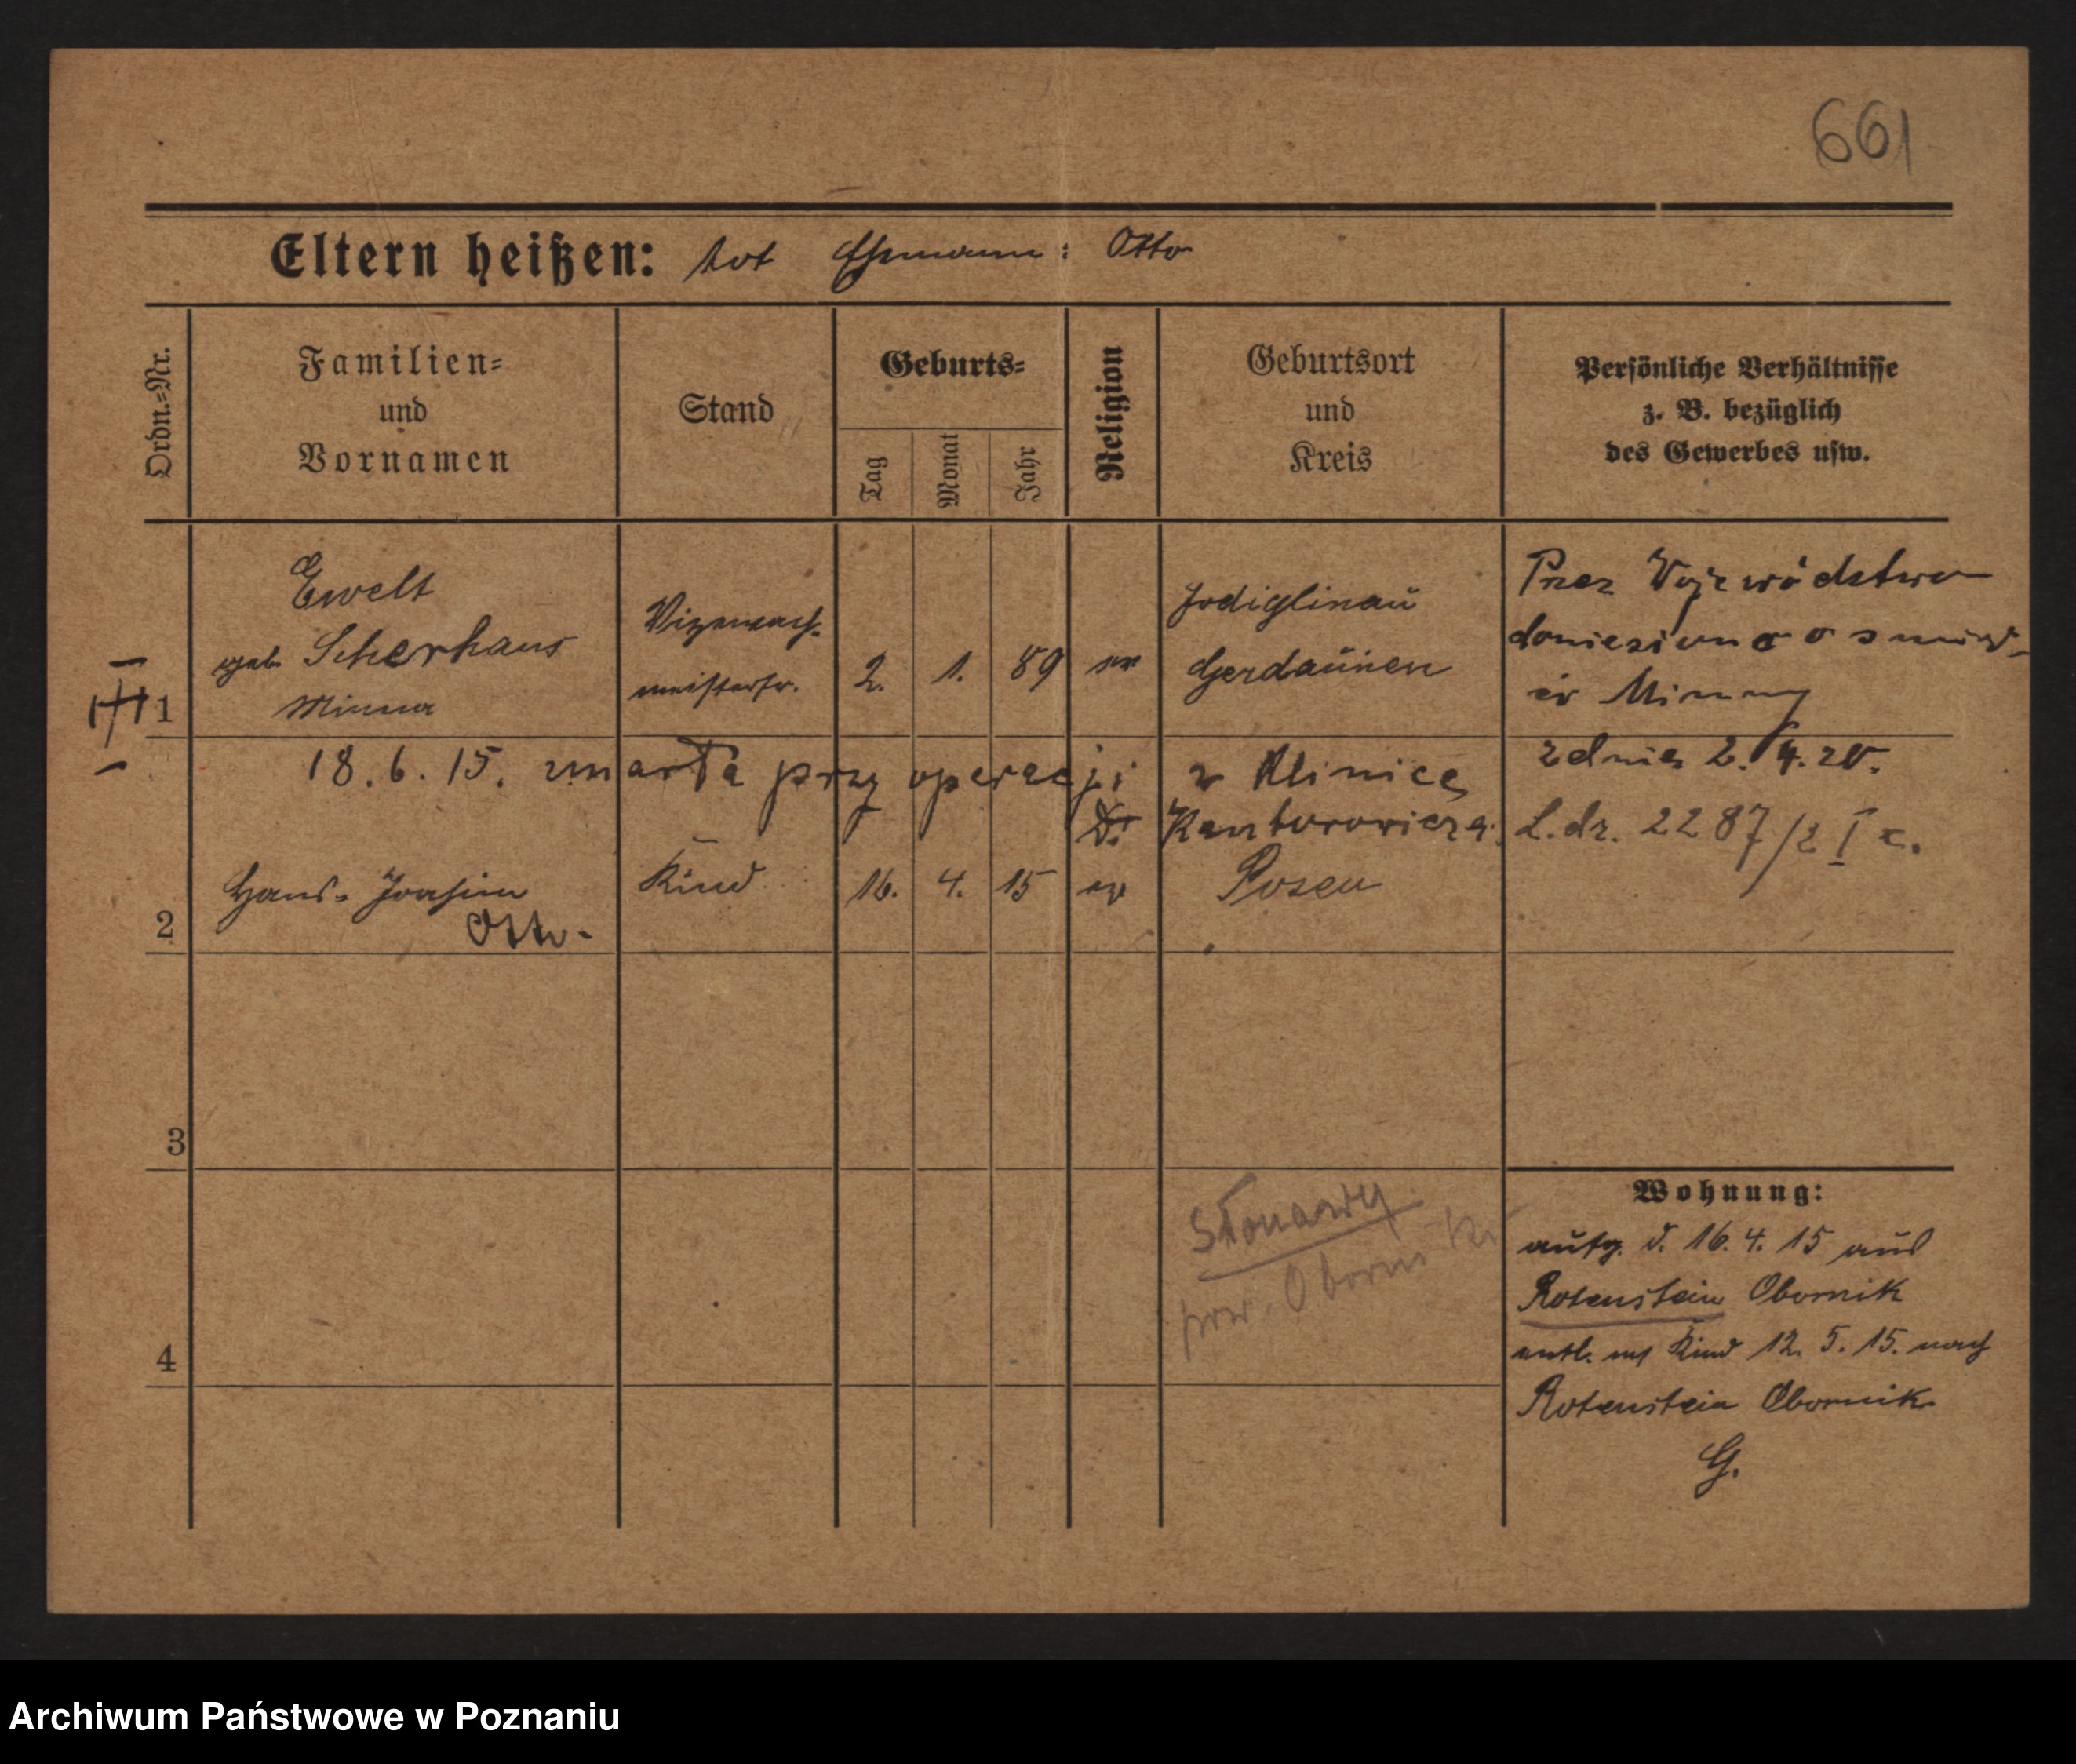 661
Eltern heißen: tot Ehemann: Otto
Ordn.-Nr.
Familien-
und
Vornamen
Stand
Geburts-
Tag
Monat
Jahr
Religion
Geburtsort
und
Kreis
Persönliche Verhältnisse
z. B. bezüglich
des Gewerbes usw.
1
Ewelt
geb. Scherhaus
Minna
Vizewach-
meisterfr.
2. 1. 89 ev
Jodiglinau
Gerdauen
Przez Województwo
doniesiono o śmier-
ci Minny
z dnia 2. 4. 20.
L.dz. 2287/2 I c.
18. 6. 15. umarła przy operacji w Klinice
Dr Kantorowicza.
2
Hans-Joachim
Otto-
Kind
16. 4. 15 ev
Posen
3
4
Słonawy
pow. Oborni
Wohnung:
aufg. d. 16. 4. 15 aus
Rotenstein Obornik
entl. mt Kind 12. 5. 15. nach
Rotenstein Obornik
G.
Archiwum Państwowe w Poznaniu